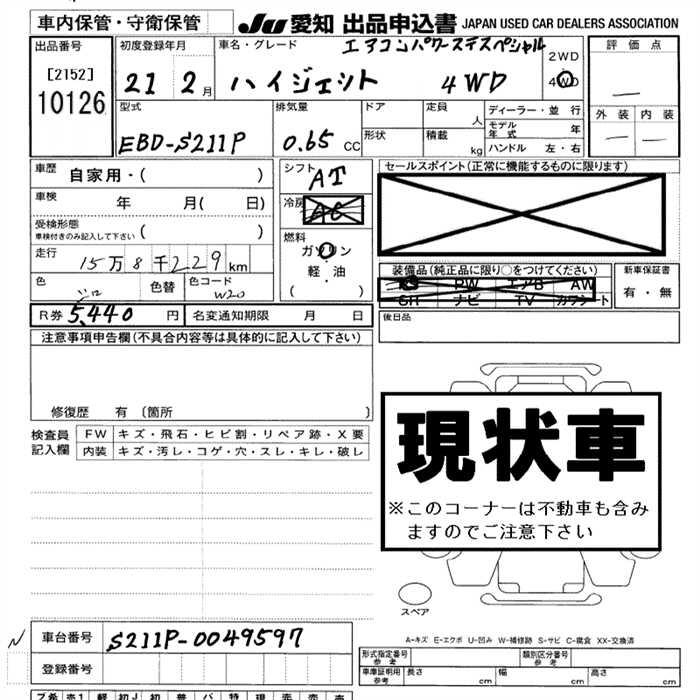 車内保管・守衛保管
JU 愛知 出品申込書 JAPAN USED CAR DEALERS ASSOCIATION
出品番号
[2152]
10126
初度登録年月
21 2月
車名・グレード
エアコンパワーステスペシャル
ハイジェット 4WD
2WD
4WD
評価点
外装 内装
型式
EBD-S211P
排気量
0.65 CC
ドア
形状
定員
人
積載
kg
ディーラー・並行
モデル年式 年
ハンドル 左・右
車歴
自家用・( )
車検
年 月( 日)
受検形態
車検付きのみ記入して下さい ( )
走行
15万8千229km
色
シロ
色替
色コード
W20
シフト
AT
冷房
AC
燃料
ガソリン
軽・油
( )
セールスポイント(正常に機能するものに限ります)
装備品(純正品に限り○をつけてください)
PS PW エアB AW
SR ナビ TV カワシート
新車保証書
有・無
R券 5,440 円
名変通知期限 月 日
後日品
注意事項申告欄(不具合内容等は具体的に記入して下さい)
修復歴 有 〔箇所 〕
検査員
記入欄
FW キズ・飛石・ヒビ割・リペア跡・X要
内装 キズ・汚レ・コゲ・穴・スレ・キレ・破レ
現状車
※このコーナーは不動車も含み
ますのでご注意下さい
スペア
A-キズ E-エクボ U-凹み W-補修跡 S-サビ C-腐食 XX-交換済
N
車台番号 S211P-0049597
登録番号
形式指定番号
参考
類別区分番号
参考
車庫証明用
参考
長さ cm 幅 cm 高さ cm